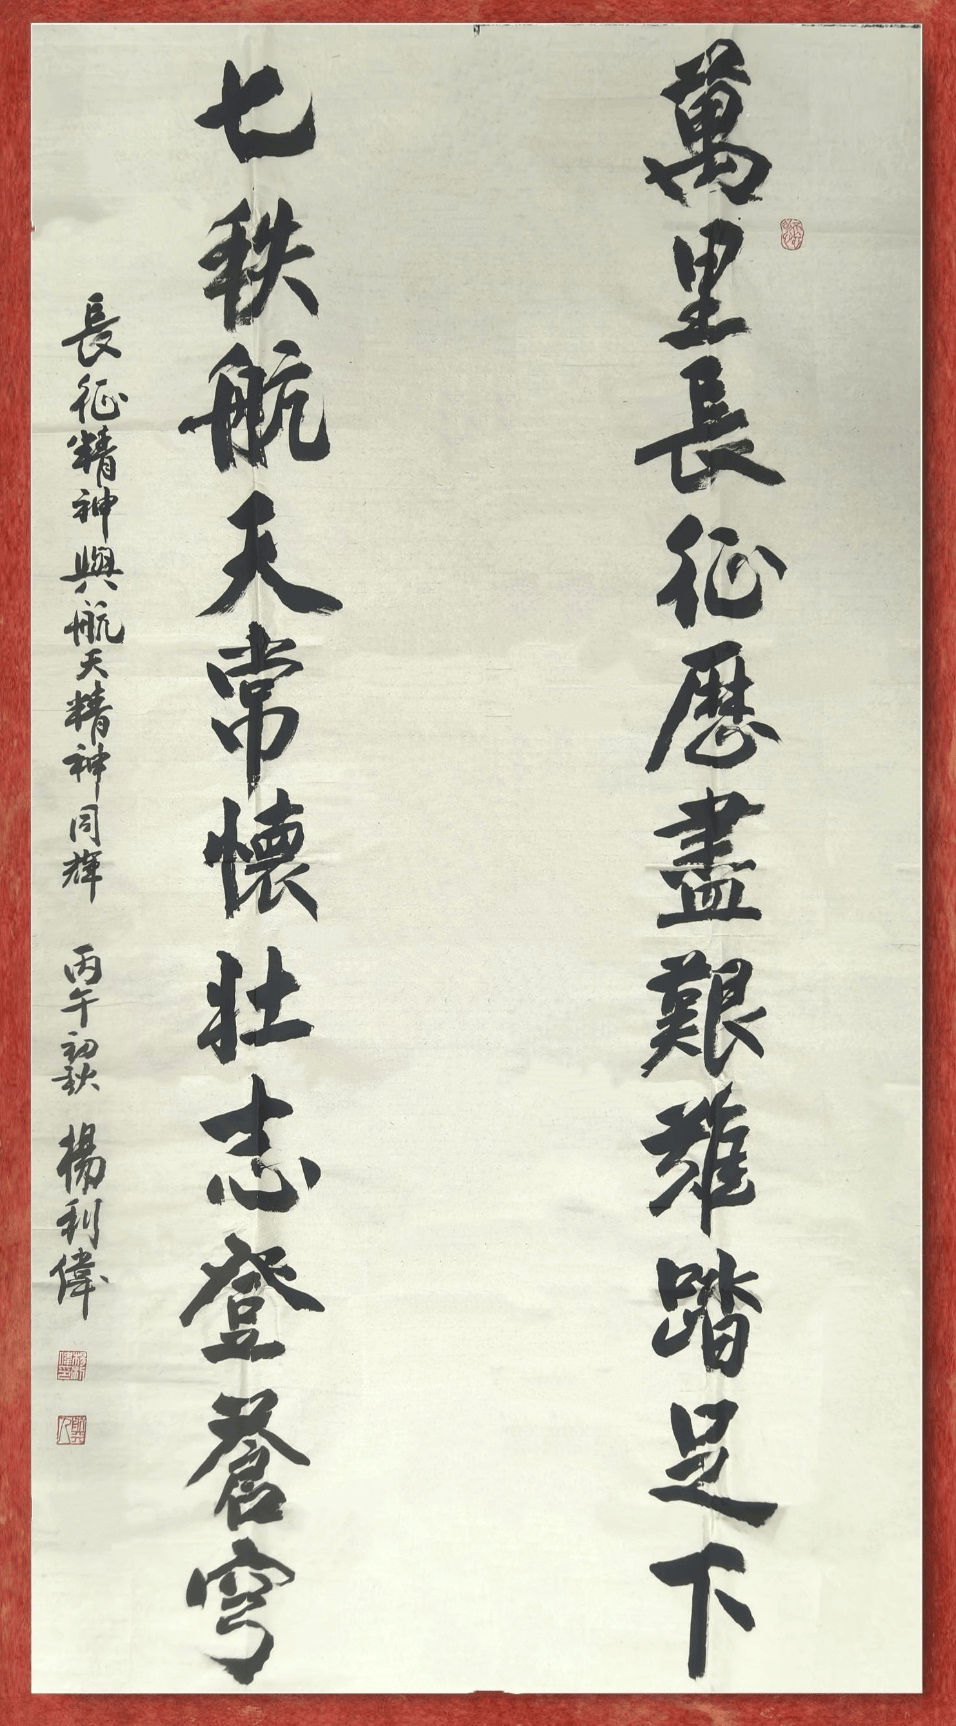 萬里長征歷盡艱難踏足下
七秩航天常懷壯志登蒼穹
長征精神與航天精神同輝 丙午初秋 楊利偉